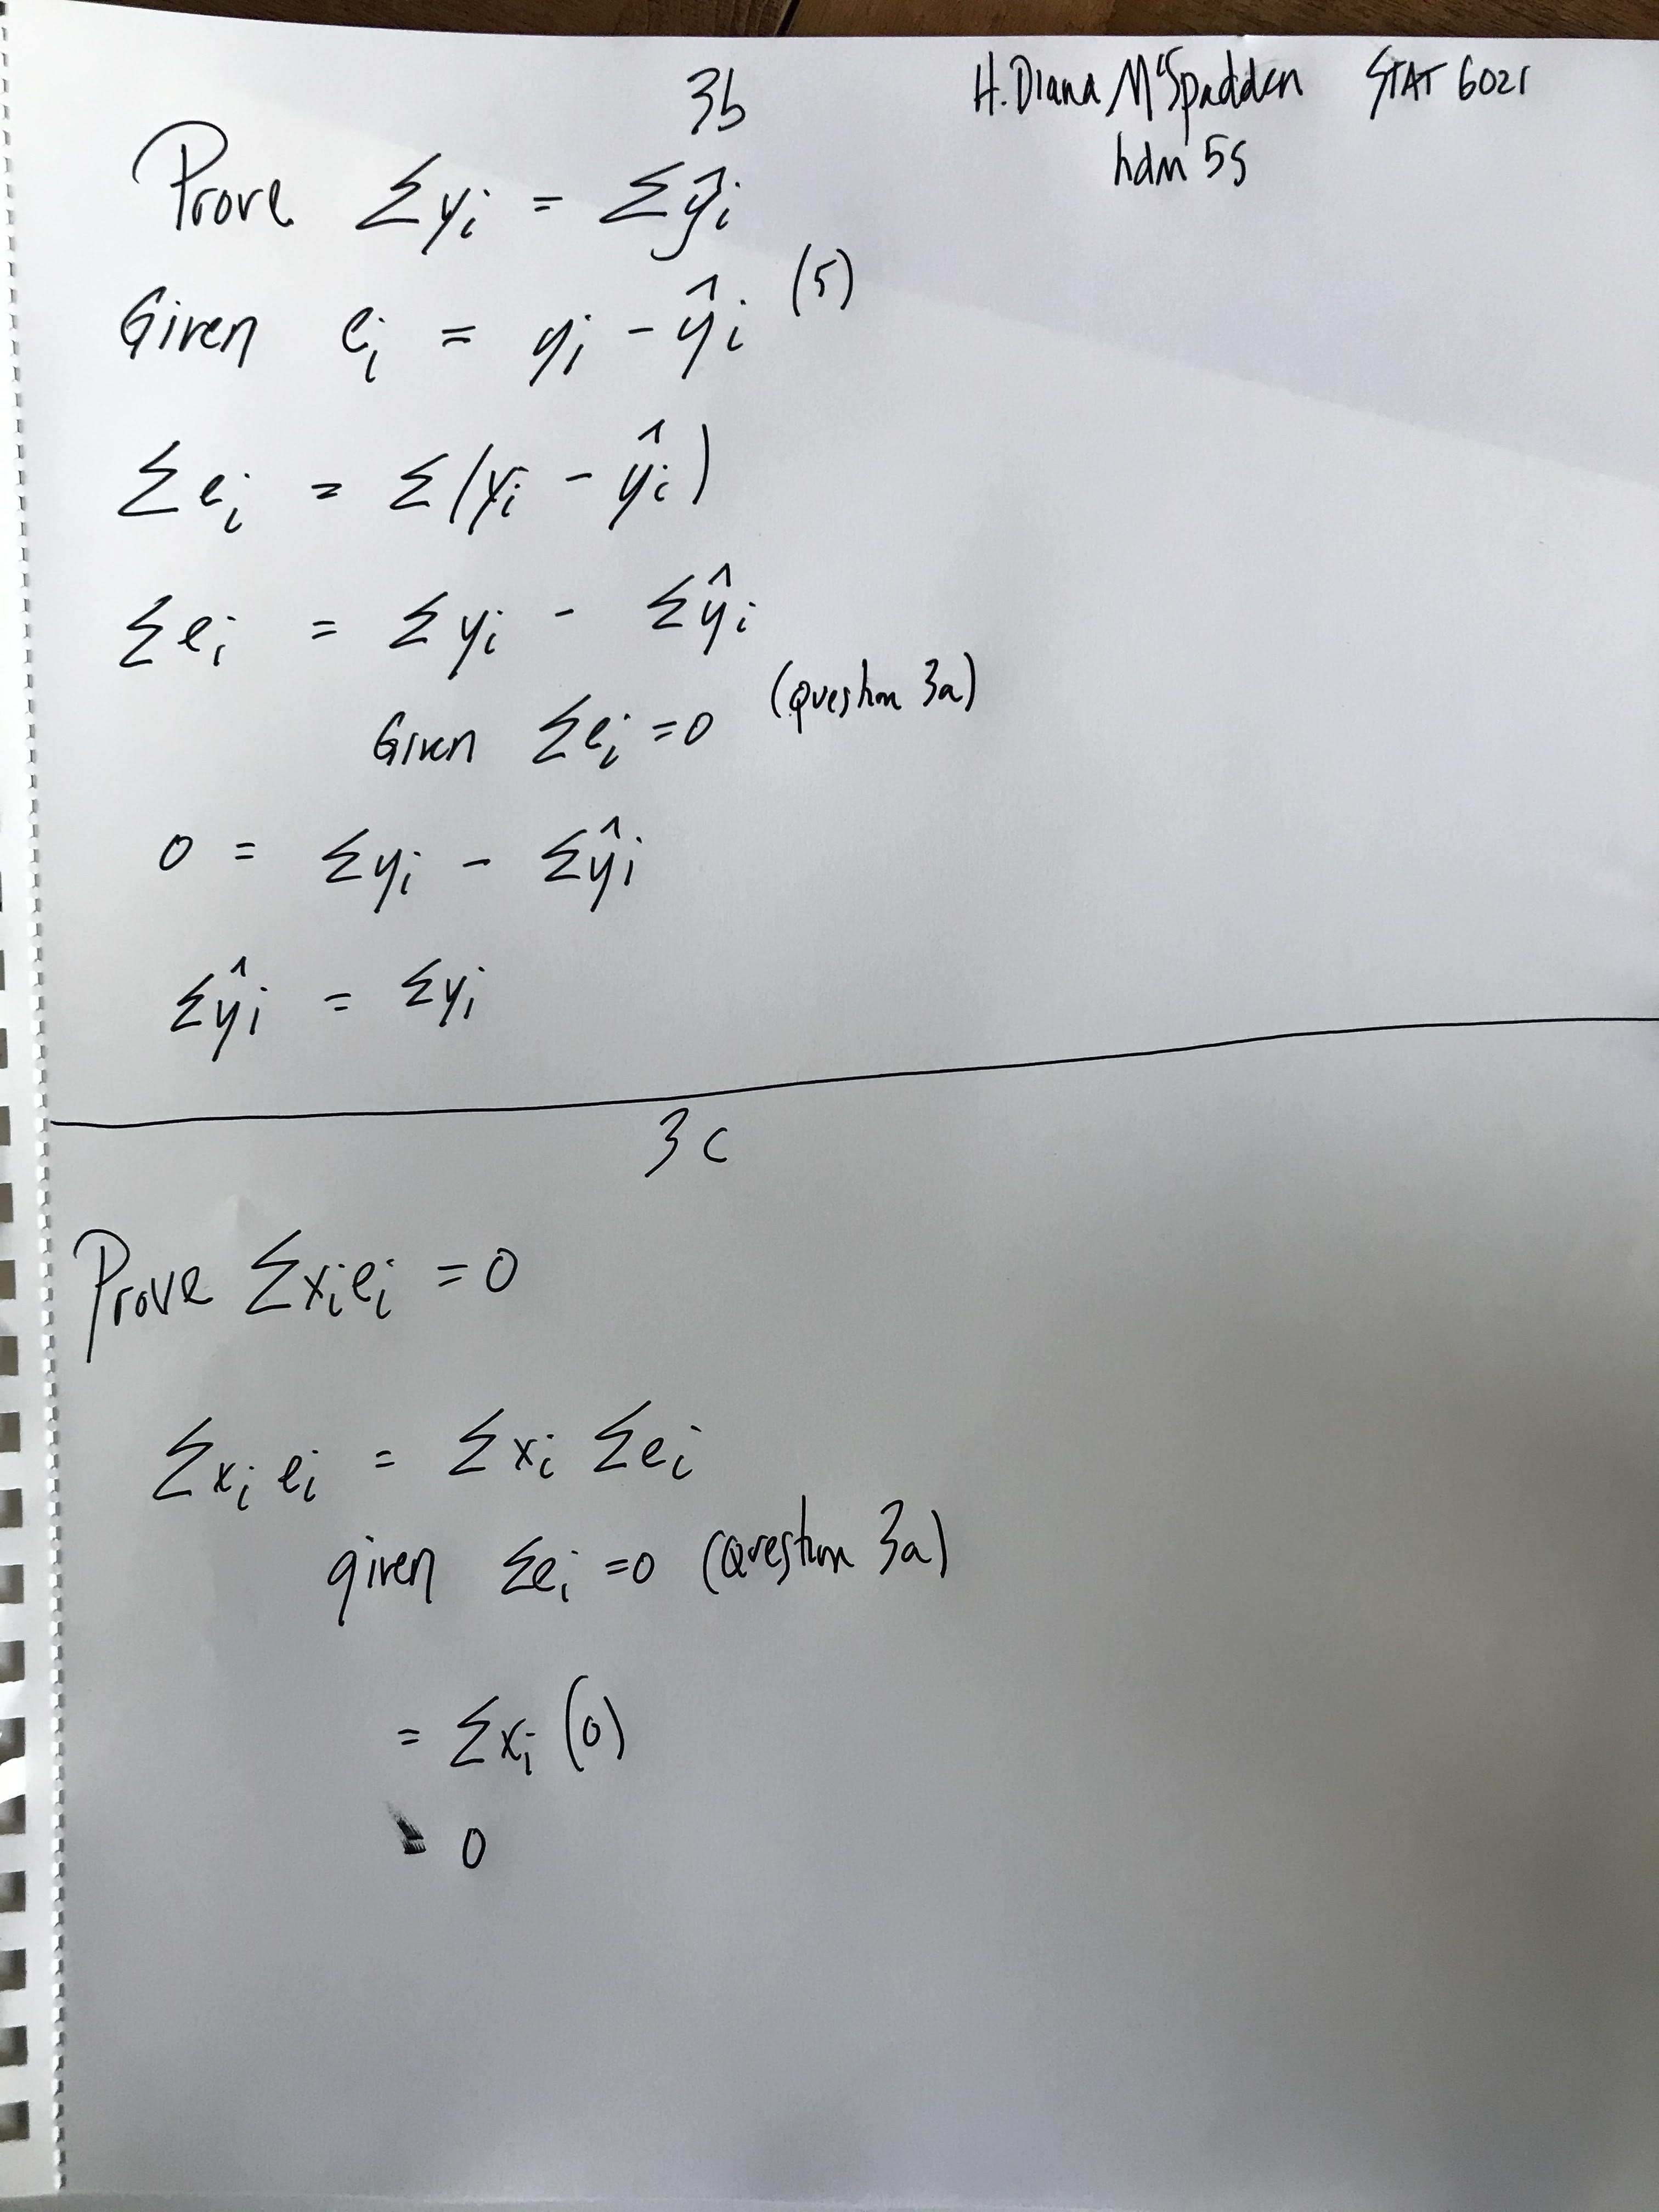 3b
H. Diana McSpadden STAT 6021
hdm 5s
Prove Σyi = Σŷi
Given ei = yi - ŷi (5)
Σei = Σ(yi - ŷi)
Σei = Σyi - Σŷi
Given Σei = 0 (Question 3a)
0 = Σyi - Σŷi
Σŷi = Σyi
3c
Prove Σxiei = 0
Σxi ei = Σxi Σei
given Σei = 0 (Question 3a)
= Σxi (0)
= 0